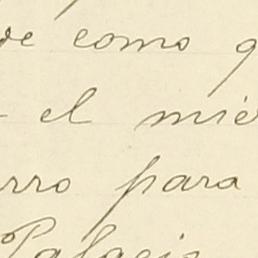 como
el mié
rro para
Palacio